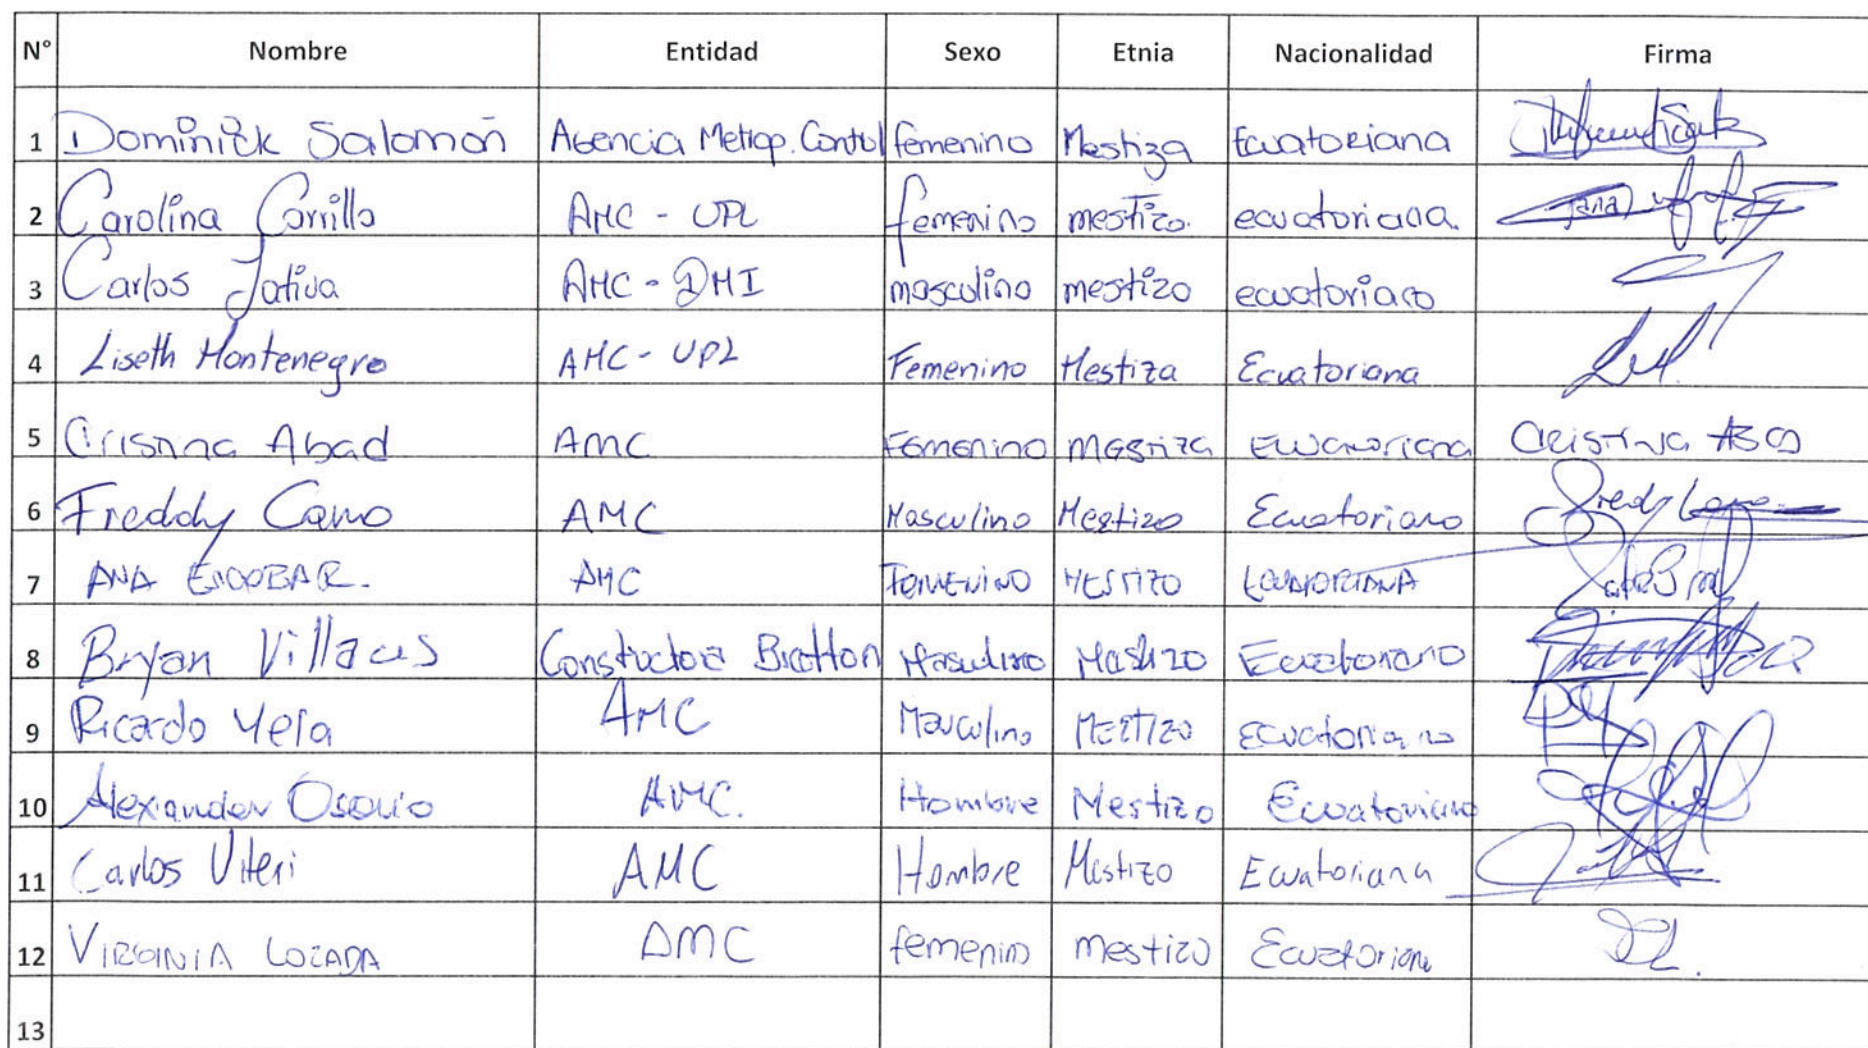 N° Nombre Entidad Sexo Etnia Nacionalidad Firma
1 Dominick Salomón Agencia Metrop. Control femenino Mestiza Ecuatoriana
2 Carolina Carrillo AMC - UPL femenino mestizo. ecuatoriana.
3 Carlos Jativa AMC - DMI masculino mestizo ecuatoriano
4 Liseth Montenegro AMC - UPL Femenino Mestiza Ecuatoriana
5 Cristina Abad AMC Femenino Mestiza Ecuatoriana Cristina
6 Freddy Cano AMC Masculino Mestizo Ecuatoriano Fredy
7 ANA ESCOBAR. AMC FEMENINO MESTIZO ECUATORIANA
8 Bryan Villacis Constructora Masculino Mestizo Ecuatoriano
9 Ricardo Vela AMC Masculino MESTIZO Ecuatoriano
10 Alexander Osorio AMC. Hombre Mestizo Ecuatoriano
11 Carlos Viteri AMC Hombre Mestizo Ecuatoriana
12 VIRGINIA LOZADA AMC femenino mestizo Ecuatoriana
13